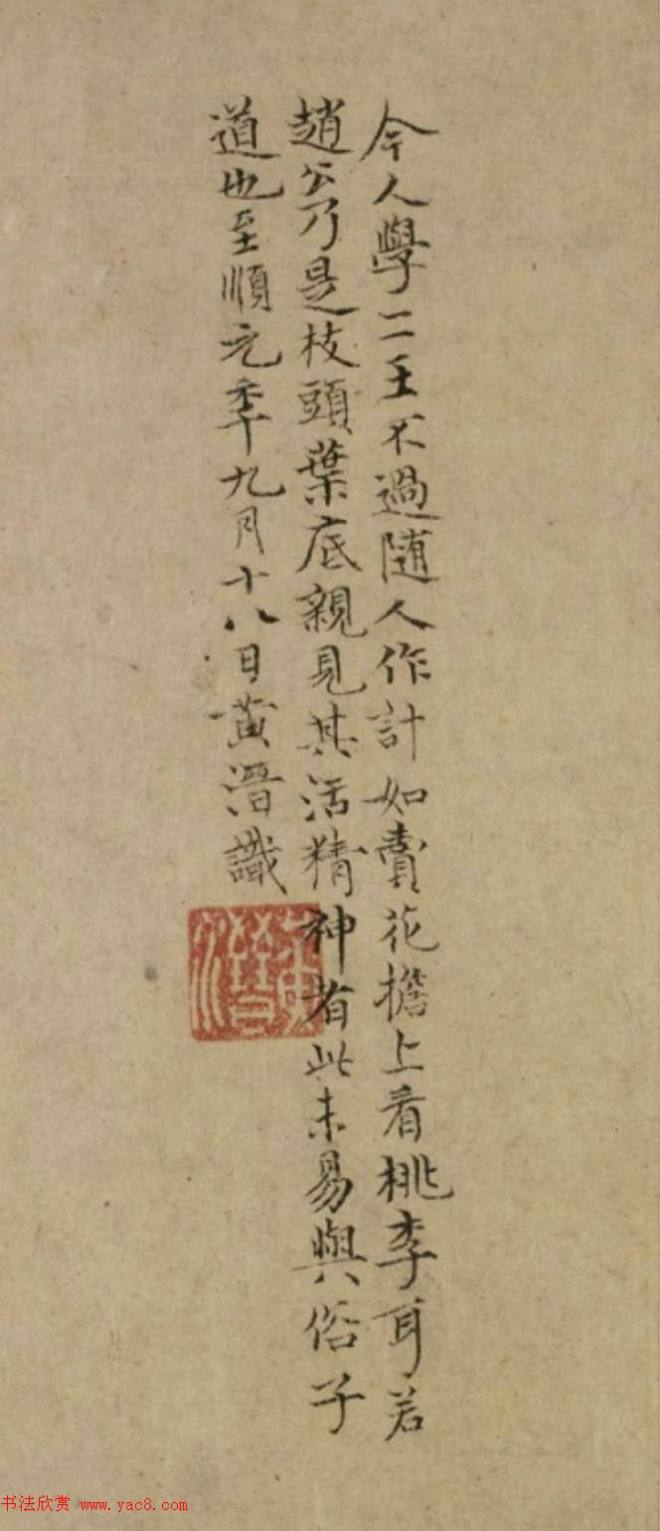 今人學二王不過随人作計如賣花擔上看桃李耳若
趙公乃是枝頭葉底親見其活精神者此未易與俗子
道也至順元年九月十八日黃溍識
黃溍
书法欣赏 www.yac8.com